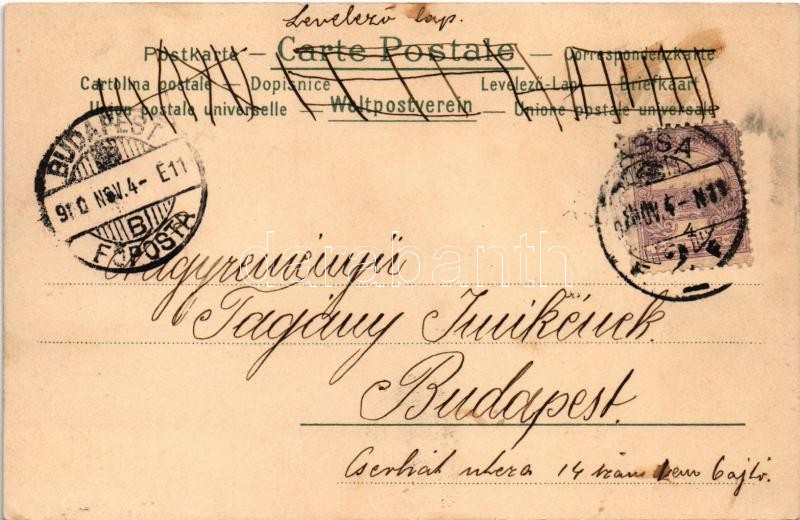 Levelező lap.
Postkarte — Carte Postale — Correspondenzkarte
Cartolina postale — Dopisnice Levelező-Lap — Briefkaart
Union postale universelle — Weltpostverein — Unione postale universale
BUDAPEST
910 NOV. 4- E11
B
FŐPOSTA
NOV. 4- N11
4
2
Nagyreményű
Tagány Imikének
Budapest.
Cserhát utcza 14 szám I em 6 ajtó.
darabanth